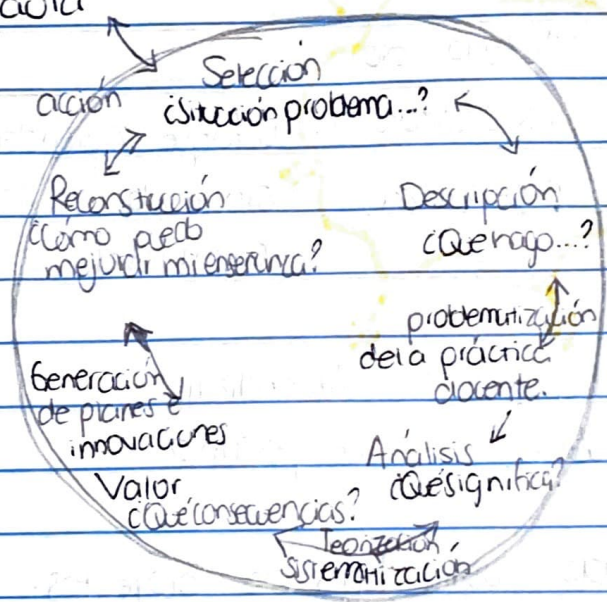 Selección
acción
¿Situación problema...?
Reconstrucción
¿Cómo puedo
mejorar mi enseñanza?
Descripción
¿Qué hago...?
problematización
de la práctica
docente.
Generación
de planes e
innovaciones
Análisis
¿Qué significa?
Valor
¿Qué consecuencias?
Teorización,
sistematización